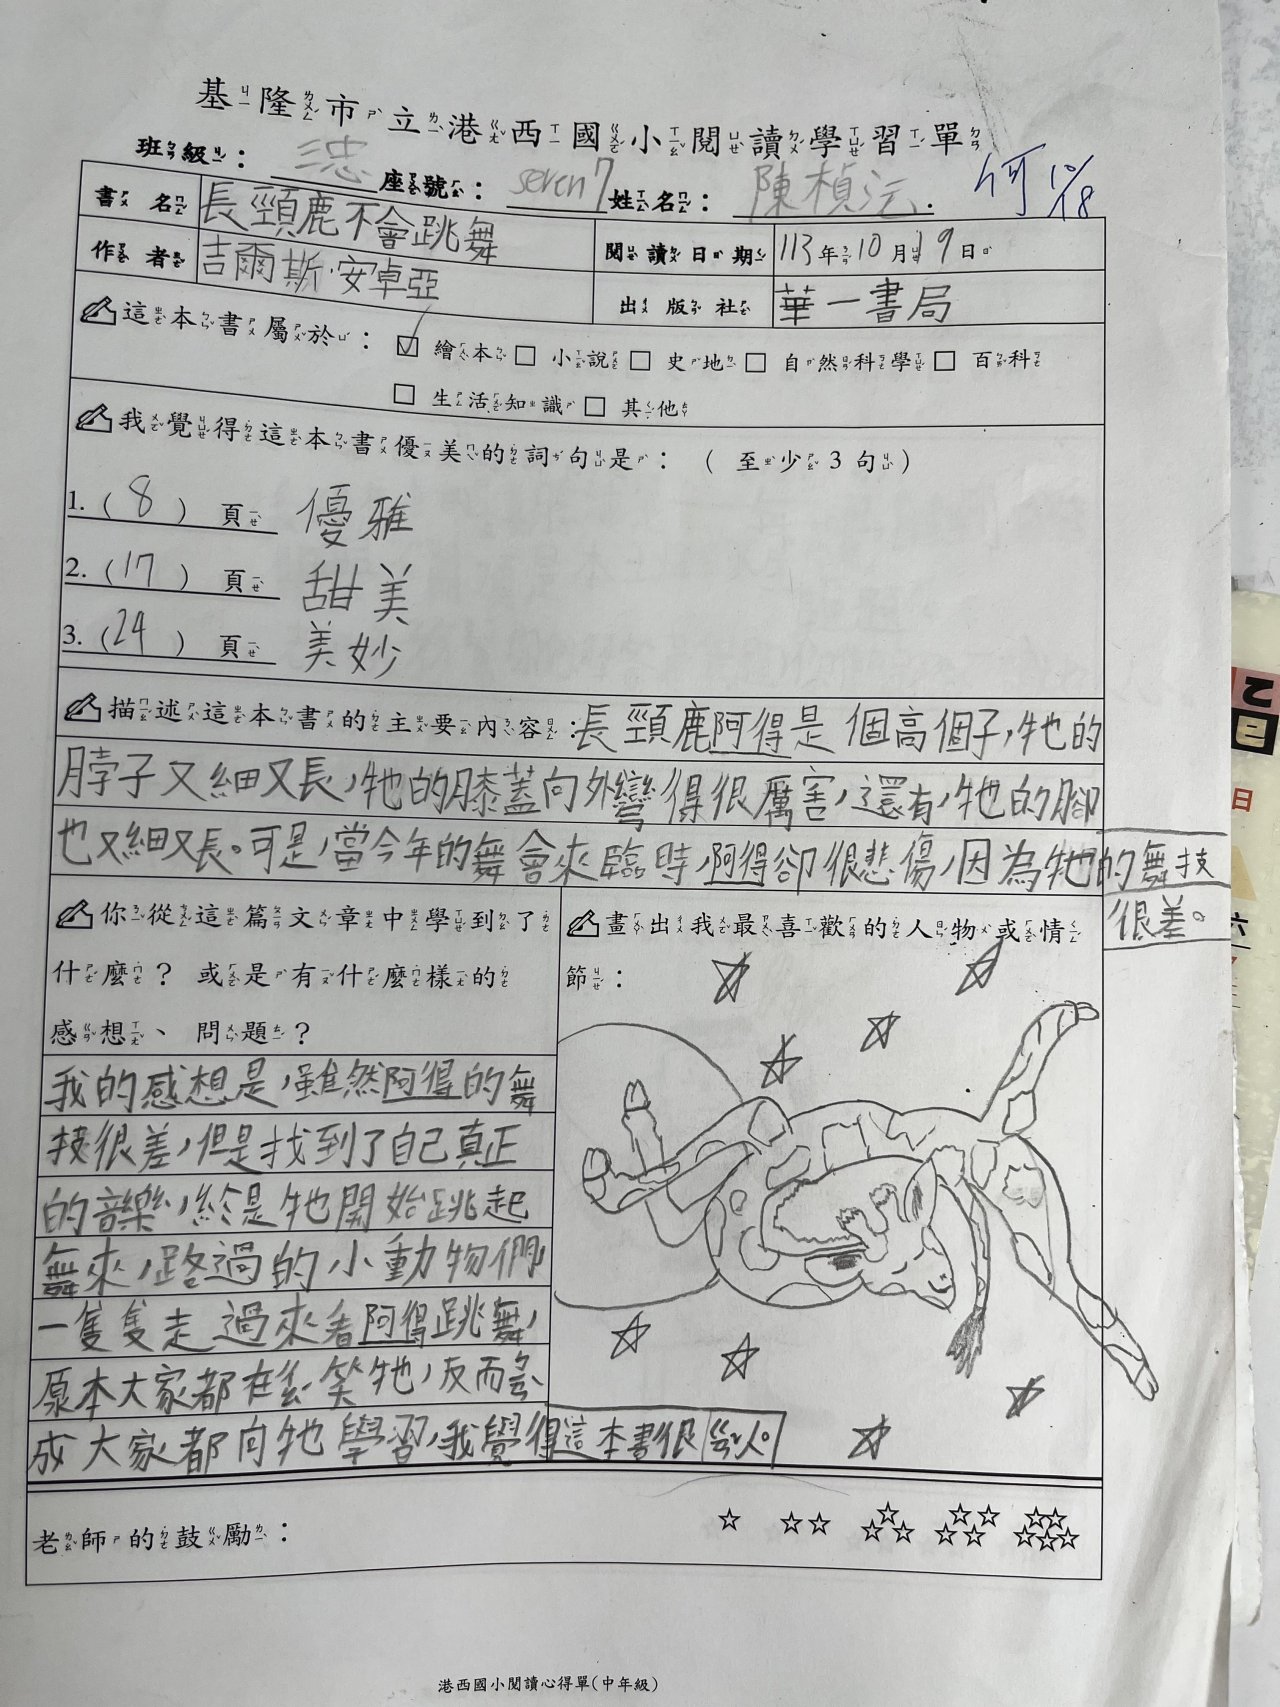 基隆市立港西國小閱讀學習單
班級： 三忠 座號： seven7 姓名： 陳楨
何 10/18
書名 長頸鹿不會跳舞 閱讀日期 113年10月19日
作者 吉爾斯·安卓亞 出版社 華一書局
這本書屬於： 繪本 小說 史地 自然科學 百科
生活知識 其他
我覺得這本書優美的詞句是： (至少3句)
1.(8) 頁 優雅
2.(17) 頁 甜美
3.(24) 頁 美妙
描述這本書的主要內容：長頸鹿阿得是個高個子，牠的
脖子又細又長，牠的膝蓋向外彎得很厲害，還有，牠的腳
也又細又長。可是，當今年的舞會來臨時，阿得卻很悲傷，因為牠的舞技
很差。
你從這篇文章中學到了
什麼？或是有什麼樣的
感想、問題？
我的感想是，雖然阿得的舞
技很差，但是找到了自己真正
的音樂，於是牠開始跳起
舞來，路過的小動物們，
一隻隻走過來看阿得跳舞，
原本大家都在ㄒㄧㄠˋ笑牠，反而變
成大家都向牠學習，我覺得這本書很ㄍㄢˇ人。
畫出我最喜歡的人物或情
節：
老師的鼓勵： ☆ ☆☆ ☆☆☆ ☆☆☆☆ ☆☆☆☆☆
港西國小閱讀心得單(中年級)
乙
巳
日
六